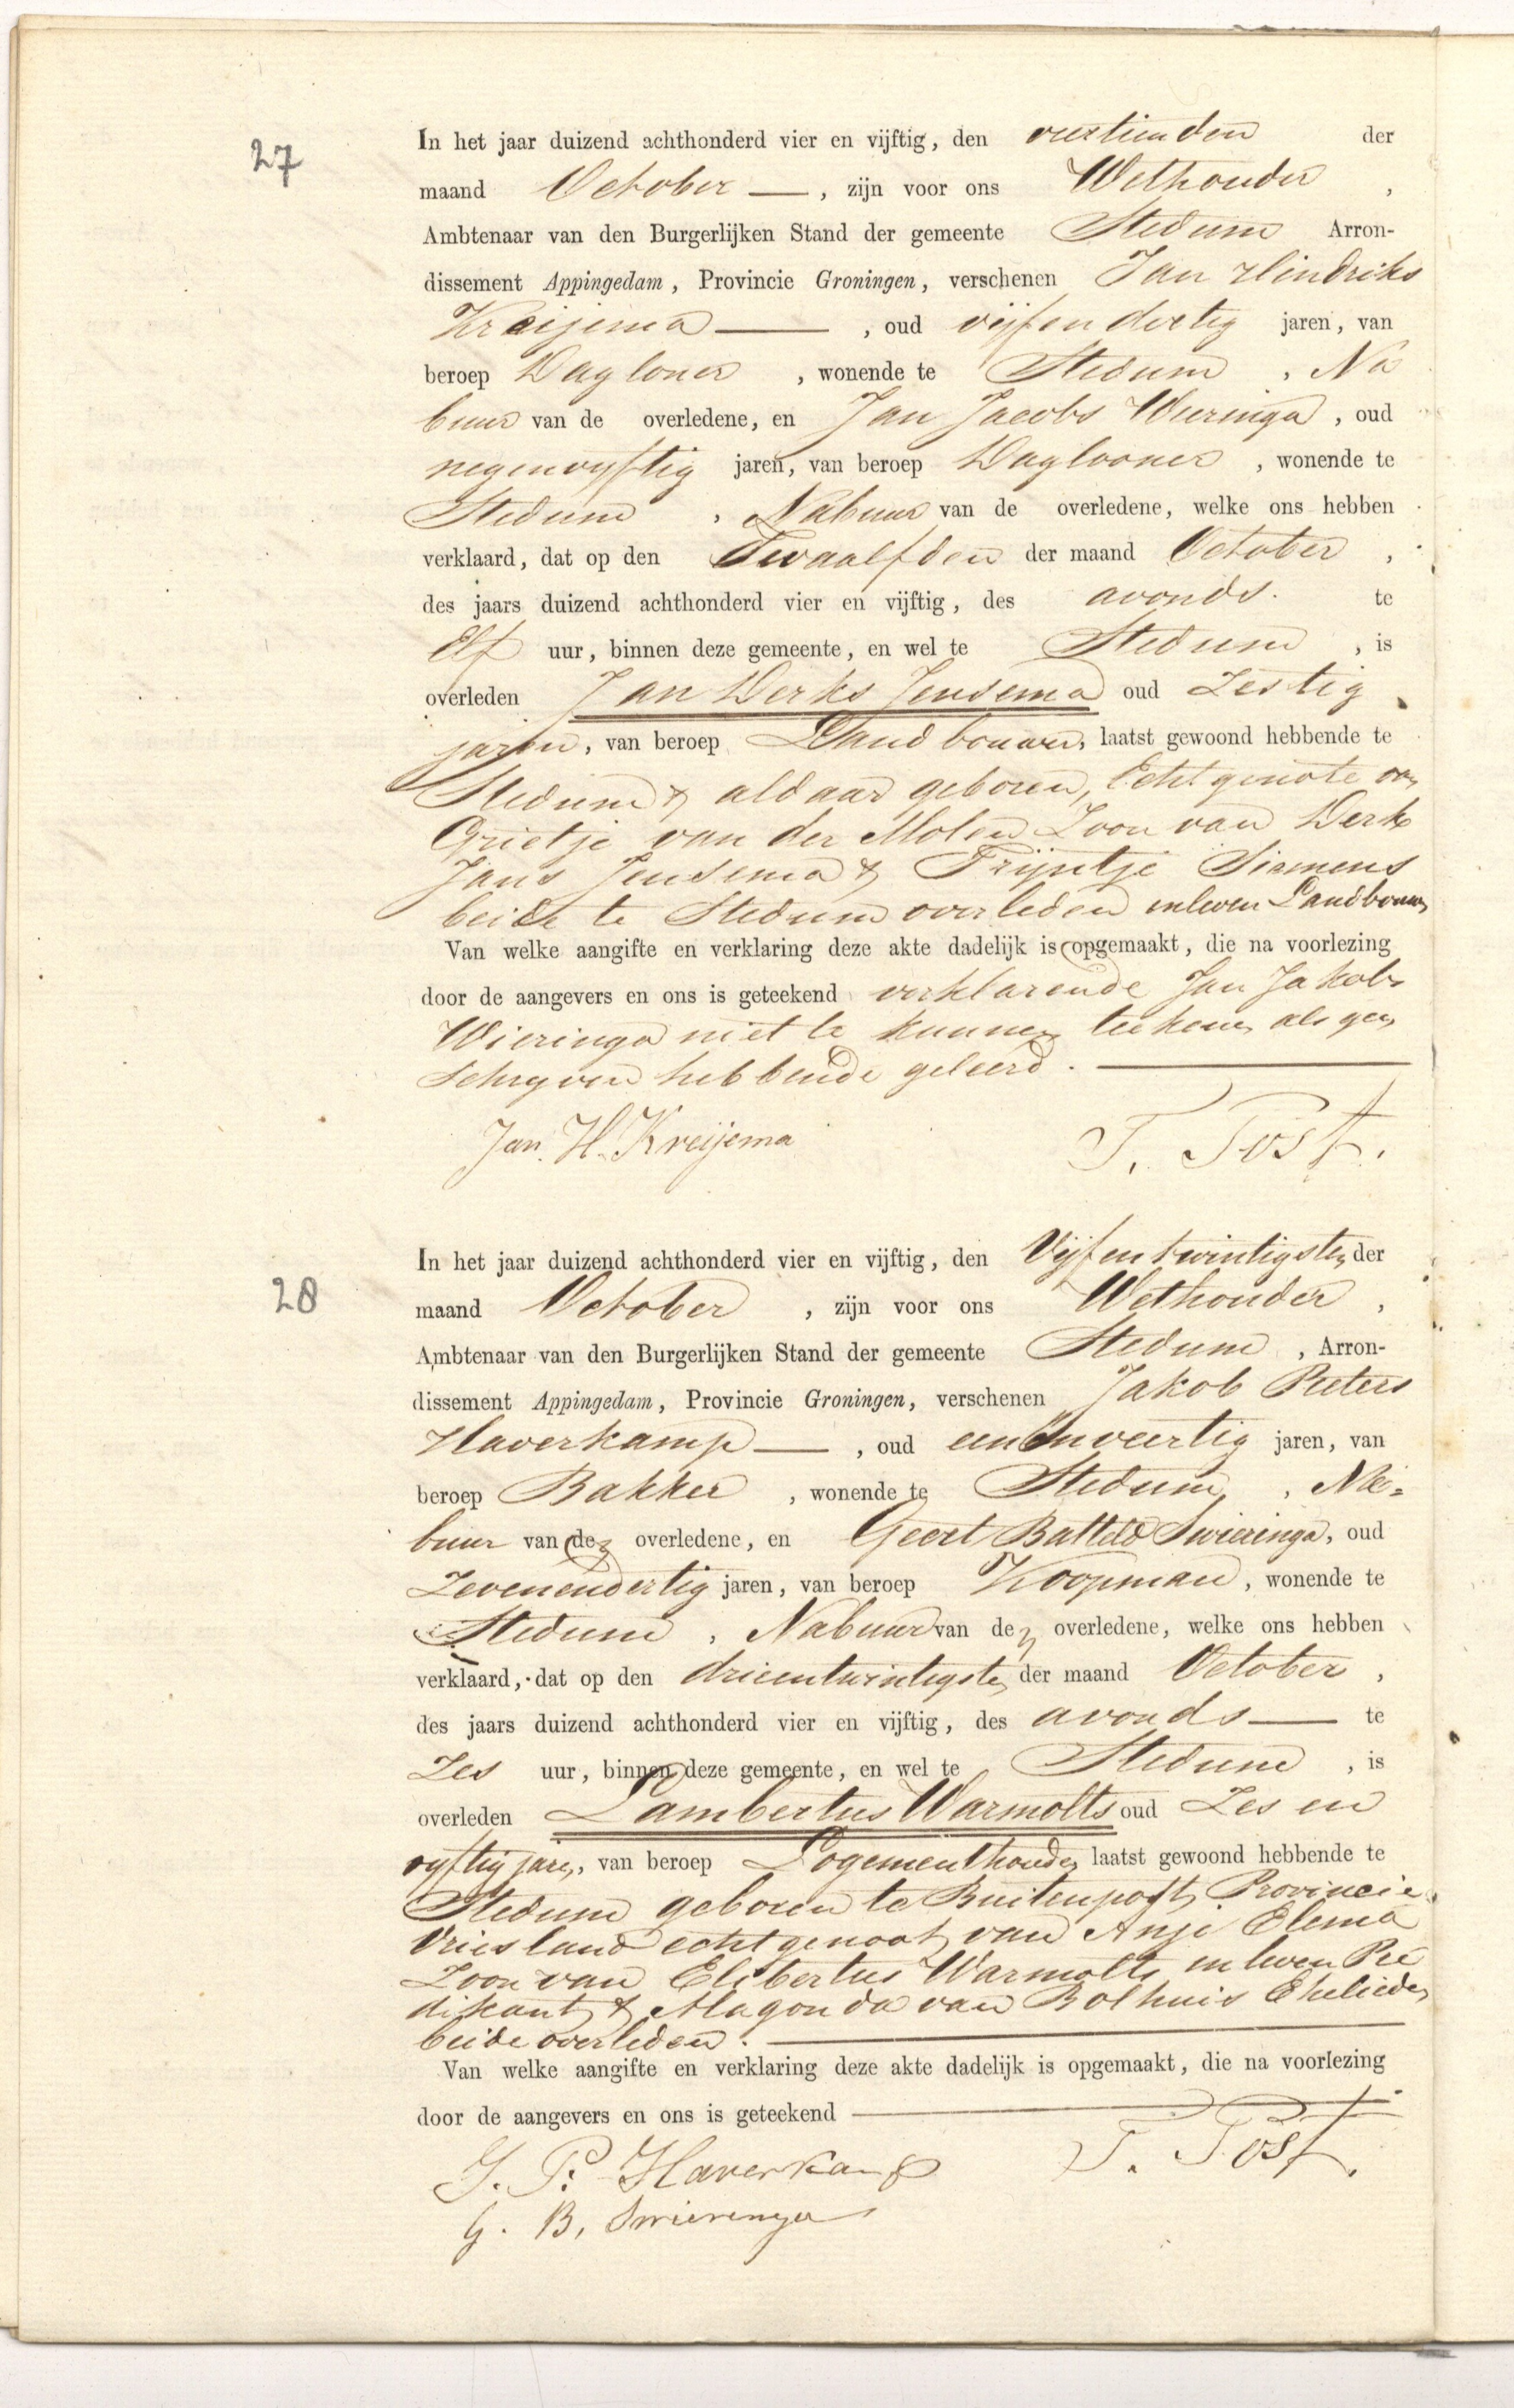 27
In het jaar duizend achthonderd vier en vijftig, den veertienden der
maand October —, zijn voor ons Wethouder ,
Ambtenaar van den Burgerlijken Stand der gemeente Stedum Arron-
dissement Appingedam, Provincie Groningen, verschenen Jan Hindriks
Kreijema — , oud vijfendertig jaren, van
beroep Dagloner , wonende te Stedum , Na
buur van de overledene, en Jan Jacobs Wieringa , oud
negenvyftig jaren, van beroep Daglooner , wonende te
Stedum , Nabuur van de overledene, welke ons hebben
verklaard, dat op den Twaalfden der maand October ,
des jaars duizend achthonderd vier en vijftig, des avonds. te
Elf uur, binnen deze gemeente, en wel te Stedum , is
overleden Jan Derks Jensema oud Zestig
jaren, van beroep Landbouwer, laatst gewoond hebbende te
Stedum & aldaar geboren, Echtgenote van
Grietje van der Molen Zoon van Derk
Jans Jensema & Trijntje Siemens
beide te Stedum overleden inleven Landbouwer
Van welke aangifte en verklaring deze akte dadelijk is opgemaakt, die na voorlezing
door de aangevers en ons is geteekend verklarende Jan Jakobs
Wieringa niet te kunnen teekenen als geen
Schryven hebbende geleerd. —
Jan. H. Kreijema T. Post.
28
In het jaar duizend achthonderd vier en vijftig, den Vijfentwintigsten der
maand October , zijn voor ons Wethouder ,
Ambtenaar van den Burgerlijken Stand der gemeente Stedum , Arron-
dissement Appingedam, Provincie Groningen, verschenen Jakob Pieters
Haverkamp — , oud eenenveertig jaren, van
beroep Bakker , wonende te Stedum , Na=
buur van den overledene, en Geert Battels Swieringa, oud
Zevenendertig jaren, van beroep Koopman , wonende te
Stedum , Nabuur van den overledene, welke ons hebben
verklaard, dat op den drieentwintigsten der maand October ,
des jaars duizend achthonderd vier en vijftig, des avonds — te
Zes uur, binnen deze gemeente, en wel te Stedum , is
overleden Lambertus Warmolts oud Zes en
vyftig jaren, van beroep Logementhouder laatst gewoond hebbende te
Stedum geboren te Buitenpost Provincie
Vriesland echtgenoot van Anje Elema
Zoon van Elibertus Warmolts in leven Pre
dikant & Magonda van Bolhuis Ehelieden
beide overleden. —
Van welke aangifte en verklaring deze akte dadelijk is opgemaakt, die na voorlezing
door de aangevers en ons is geteekend —
J. P. Haverkamp T. Post.
G. B. Swieringa